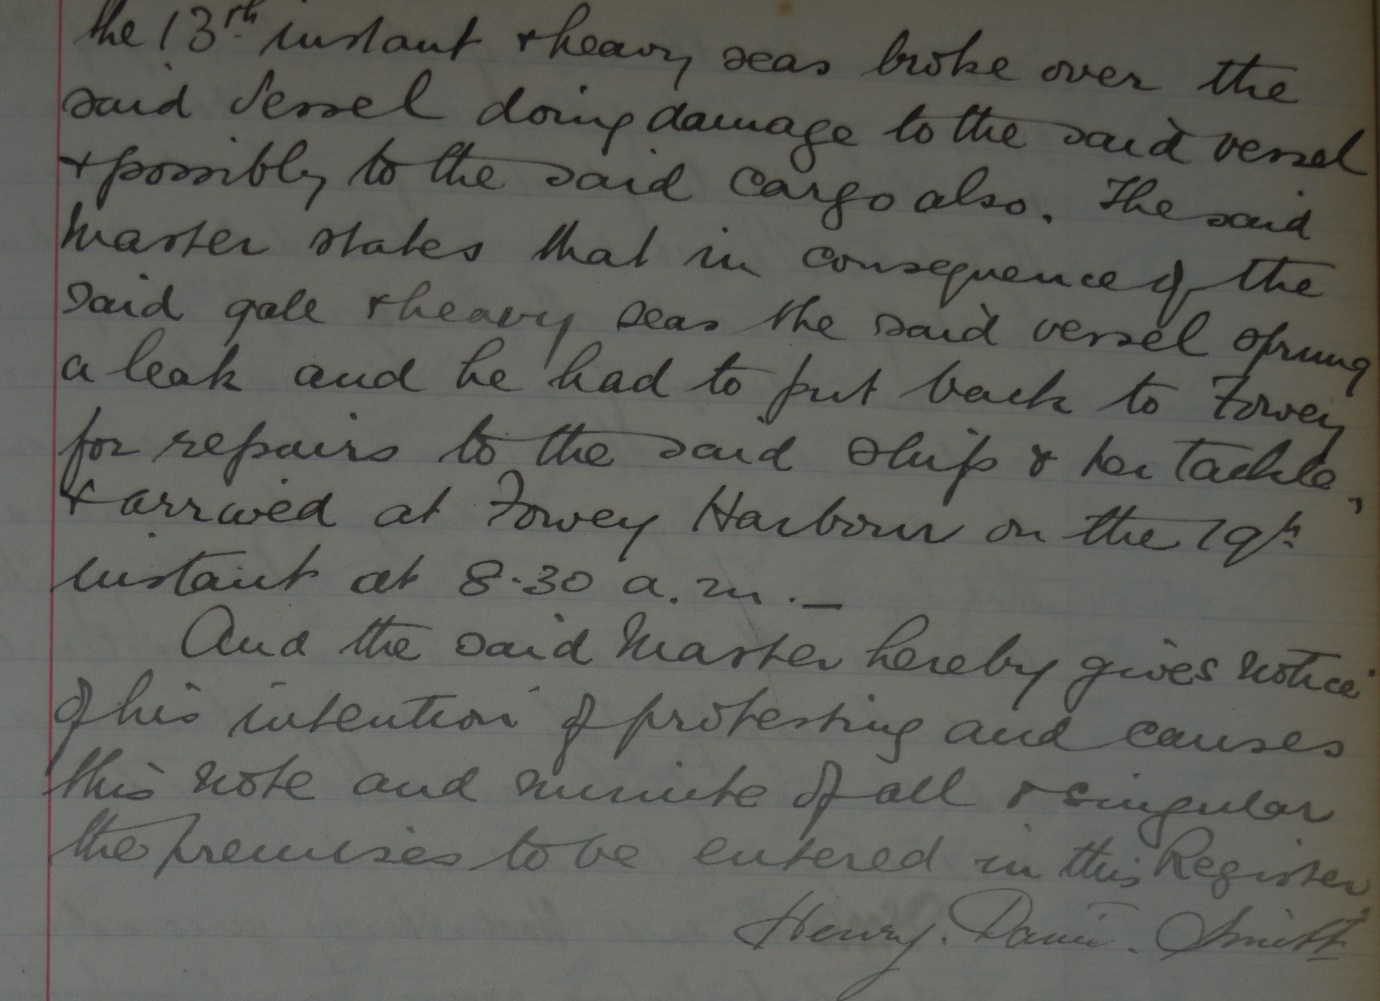 the 13th instant & heavy seas broke over the
said Vessel doing damage to the said vessel
& possibly to the said cargo also. The said
Master states that in consequence of the
said gale & heavy seas the said vessel sprung
a leak and he had to put back to Fowey
for repairs to the said ship & her tackle,
& arrived at Fowey Harbour on the 19th
instant at 8.30 a.m. _
And the said Master hereby gives notice
of his intention of protesting and causes
this note and minute of all & singular
the premises to be entered in this Register
Henry. . Smith